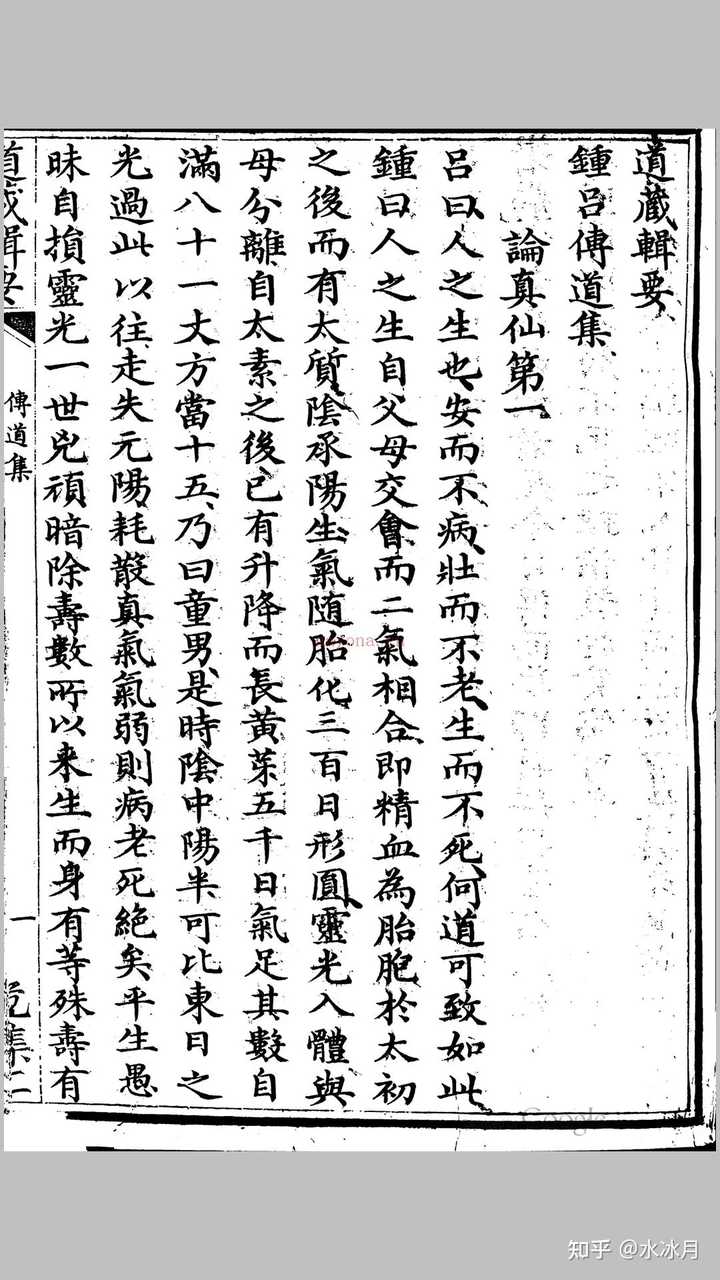 道藏輯要
鍾呂傳道集
論真仙第一
呂曰人之生也、安而不病、壯而不老、生而不死、何道可致如此
鍾曰人之生自父母交會而二氣相合、即精血為胎胞於太初
之後而有太質、陰承陽生、氣随胎化、三百日形圓、靈光入體與
母分離自太素之後、已有升降而長黃芽五千日氣足其數自
滿八十一丈方當十五、乃曰童男、是時陰中陽半可比東日之
光過此以往、走失元陽、耗散真氣氣弱則病老死絕矣平生愚
昧自損靈光一世兇頑暗除壽數所以来生而身有等殊壽有
道藏輯要
傳道集
一
Google
知乎 @水冰月